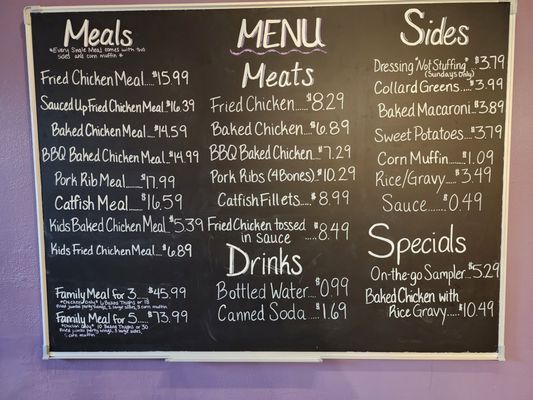 MENU
Meals
*Every Single Meal comes with two
sides and corn muffin *
Fried Chicken Meal....$15.99
Sauced Up Fried Chicken Meal..$16.39
Baked Chicken Meal....$14.59
BBQ Baked Chicken Meal..$14.99
Pork Rib Meal......$17.99
Catfish Meal......$16.59
Kids Baked Chicken Meal..$5.39
Kids Fried Chicken Meal...$6.89
Family Meal for 3....$45.99
Family Meal for 5.....$73.99
Meats
Fried Chicken.....$8.29
Baked Chicken....$6.89
BBQ Baked Chicken...$7.29
Pork Ribs (4Bones)..$10.29
Catfish Fillets....$8.99
Fried Chicken tossed
in sauce.....$8.49
Drinks
Bottled Water...$0.99
Canned Soda...$1.69
Sides
Dressing "Not Stuffing"..$3.79
(Sundays Only)
Collard Greens...$3.99
Baked Macaroni..$3.89
Sweet Potatoes..$3.79
Corn Muffin....$1.09
Rice/Gravy....$3.49
Sauce.......$0.49
Specials
On-the-go Sampler..$5.29
Baked Chicken with
Rice Gravy.....$10.49